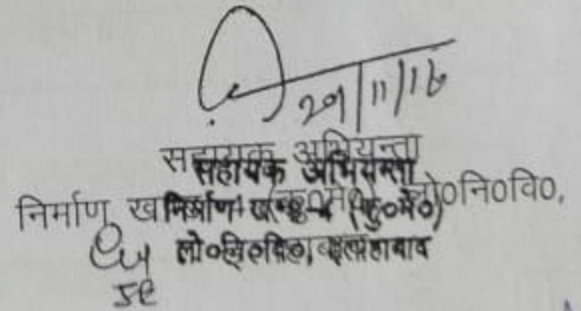 29/11/16
सहायक अभियन्ता
सहायक अभियन्ता
निर्माण लो०नि०वि०,
निर्माण (कु०मे०)
लो०नि०वि०, इलाहाबाद
JE